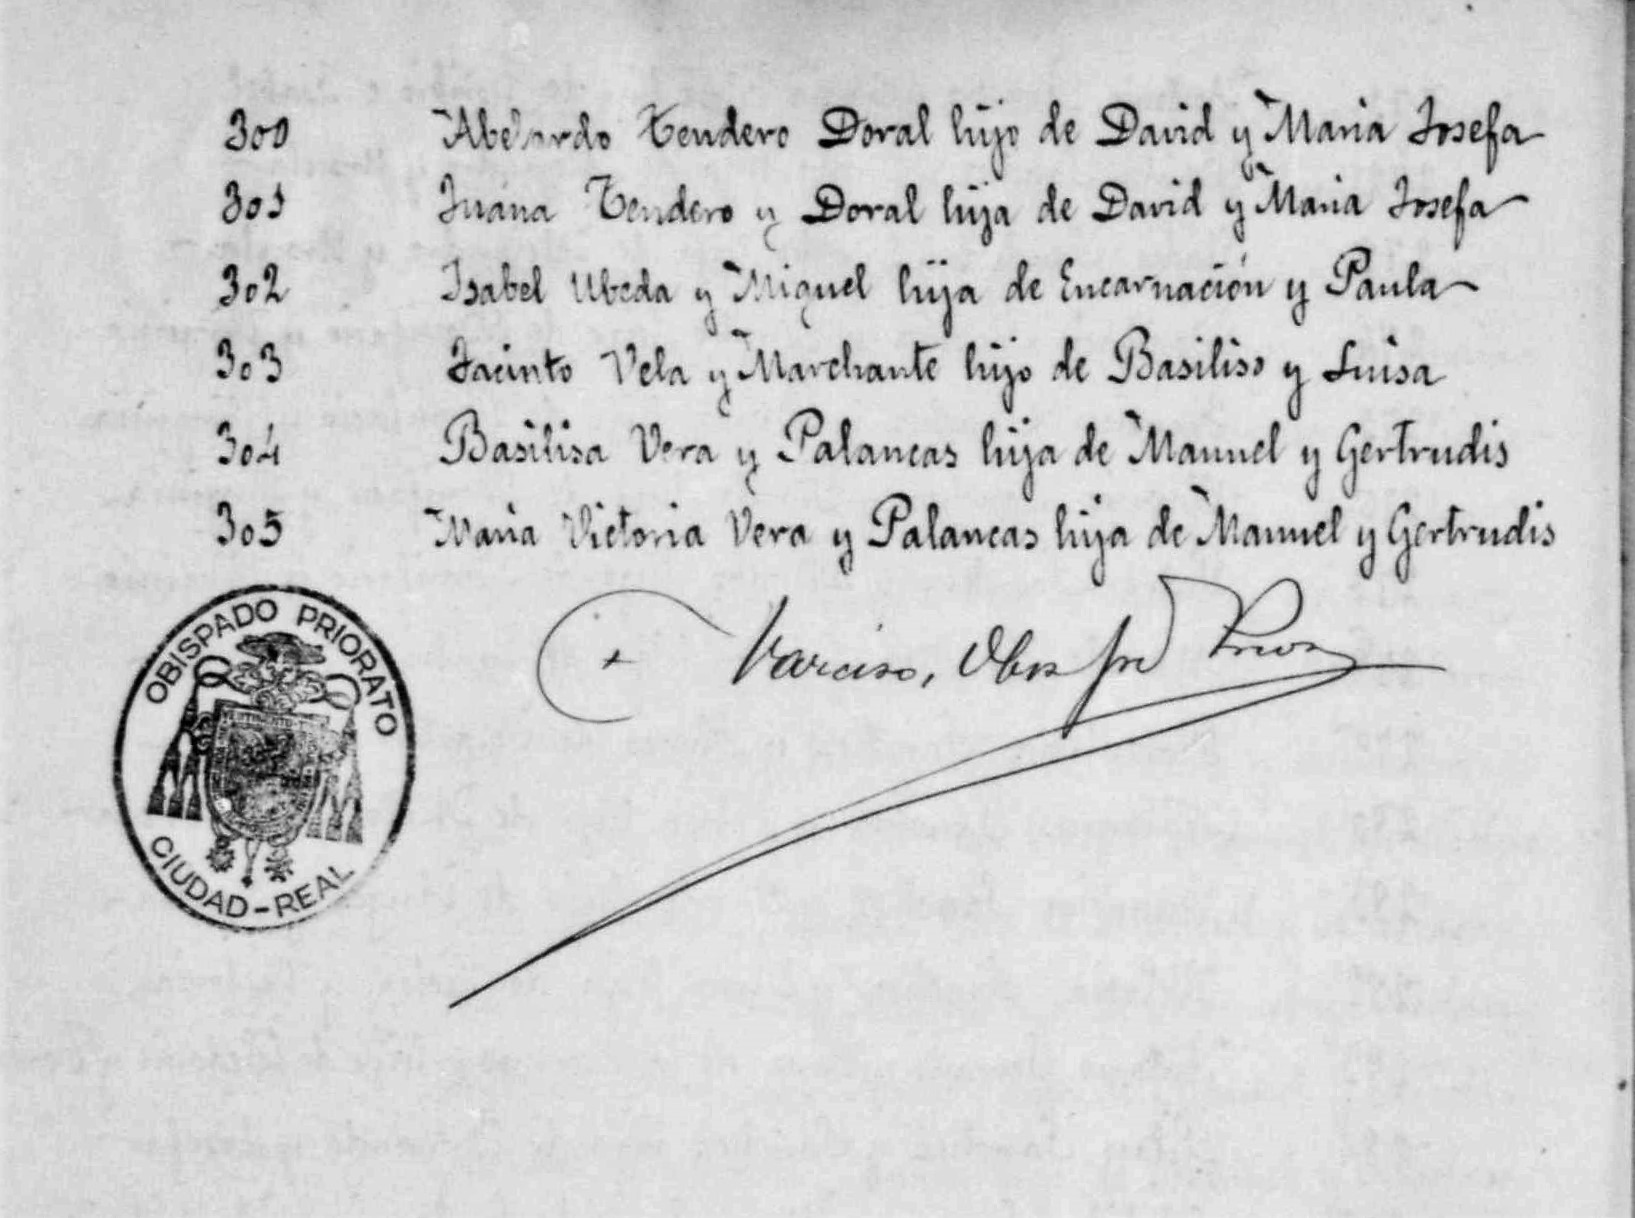 300 Abelardo Tendero Doral hijo de David y Maria Josefa
301 Juana Tendero y Doral hija de David y Maria Josefa
302 Isabel Ubeda y Miguel hija de Encarnación y Paula
303 Jacinto Vela y Marchante hijo de Basiliso y Luisa
304 Basilisa Vera y Palancas hija de Manuel y Gertrudis
305 Maria Victoria Vera y Palancas hija de Manuel y Gertrudis
+ Narciso, Obpo Prior
OBISPADO PRIORATO
CIUDAD-REAL